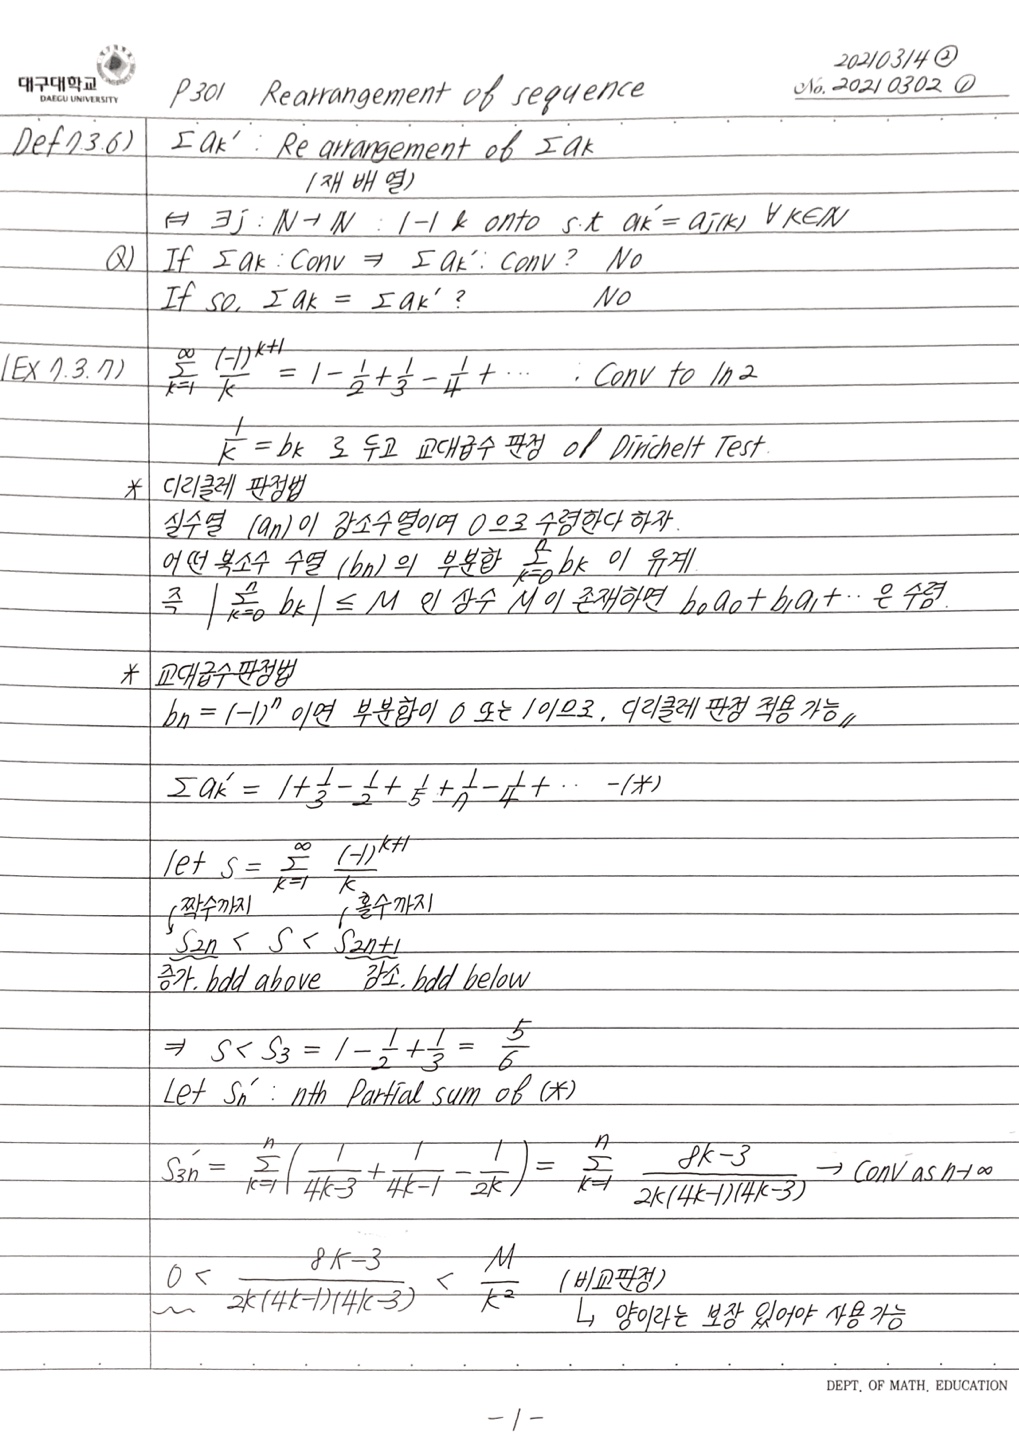 20210314②
대구대학교
DAEGU UNIVERSITY
P301 Rearrangement of sequence
No. 20210302 ①
Def 7.3.6) Σak′ : Rearrangement of Σak
(재배열)
⇔ ∃j : ℕ→ℕ : 1-1 & onto s.t ak′ = aj(k) ∀k∈ℕ
Q) If Σak : Conv ⇒ Σak′ : Conv? No
If so, Σak = Σak′? No
(EX 7.3.7) ∞Σk=1 (-1)^k+1/k = 1 - 1/2 + 1/3 - 1/4 + ⋯ : Conv to ln2
1/k = bk 로 두고 교대급수 판정 of Dirichelt Test.
* 디리클레 판정법
실수열 (an)이 감소수열이며 0으로 수렴한다 하자.
어떤 복소수 수열 (bn)의 부분합 nΣk=0 bk 이 유계.
즉 |nΣk=0 bk| ≤ M 인 상수 M이 존재하면 b0a0 + b1a1 + ⋯ 은 수렴.
* 교대급수판정법
bn = (-1)^n 이면 부분합이 0 또는 1이므로, 디리클레 판정 적용 가능 〃
Σak′ = 1 + 1/3 - 1/2 + 1/5 + 1/7 - 1/4 + ⋯ -(*)
let S = ∞Σk=1 (-1)^k+1/k
짝수까지 홀수까지
S2n < S < S2n+1
증가. bdd above 감소. bdd below
⇒ S < S3 = 1 - 1/2 + 1/3 = 5/6
Let Sn′ : nth Partial sum of (*)
S3n′ = nΣk=1 (1/4k-3 + 1/4k-1 - 1/2k) = nΣk=1 8k-3/2k(4k-1)(4k-3) → Conv as n→∞
0 < 8k-3/2k(4k-1)(4k-3) < M/k² (비교판정)
↳ 양이라는 보장 있어야 사용가능
DEPT. OF MATH. EDUCATION
-1-